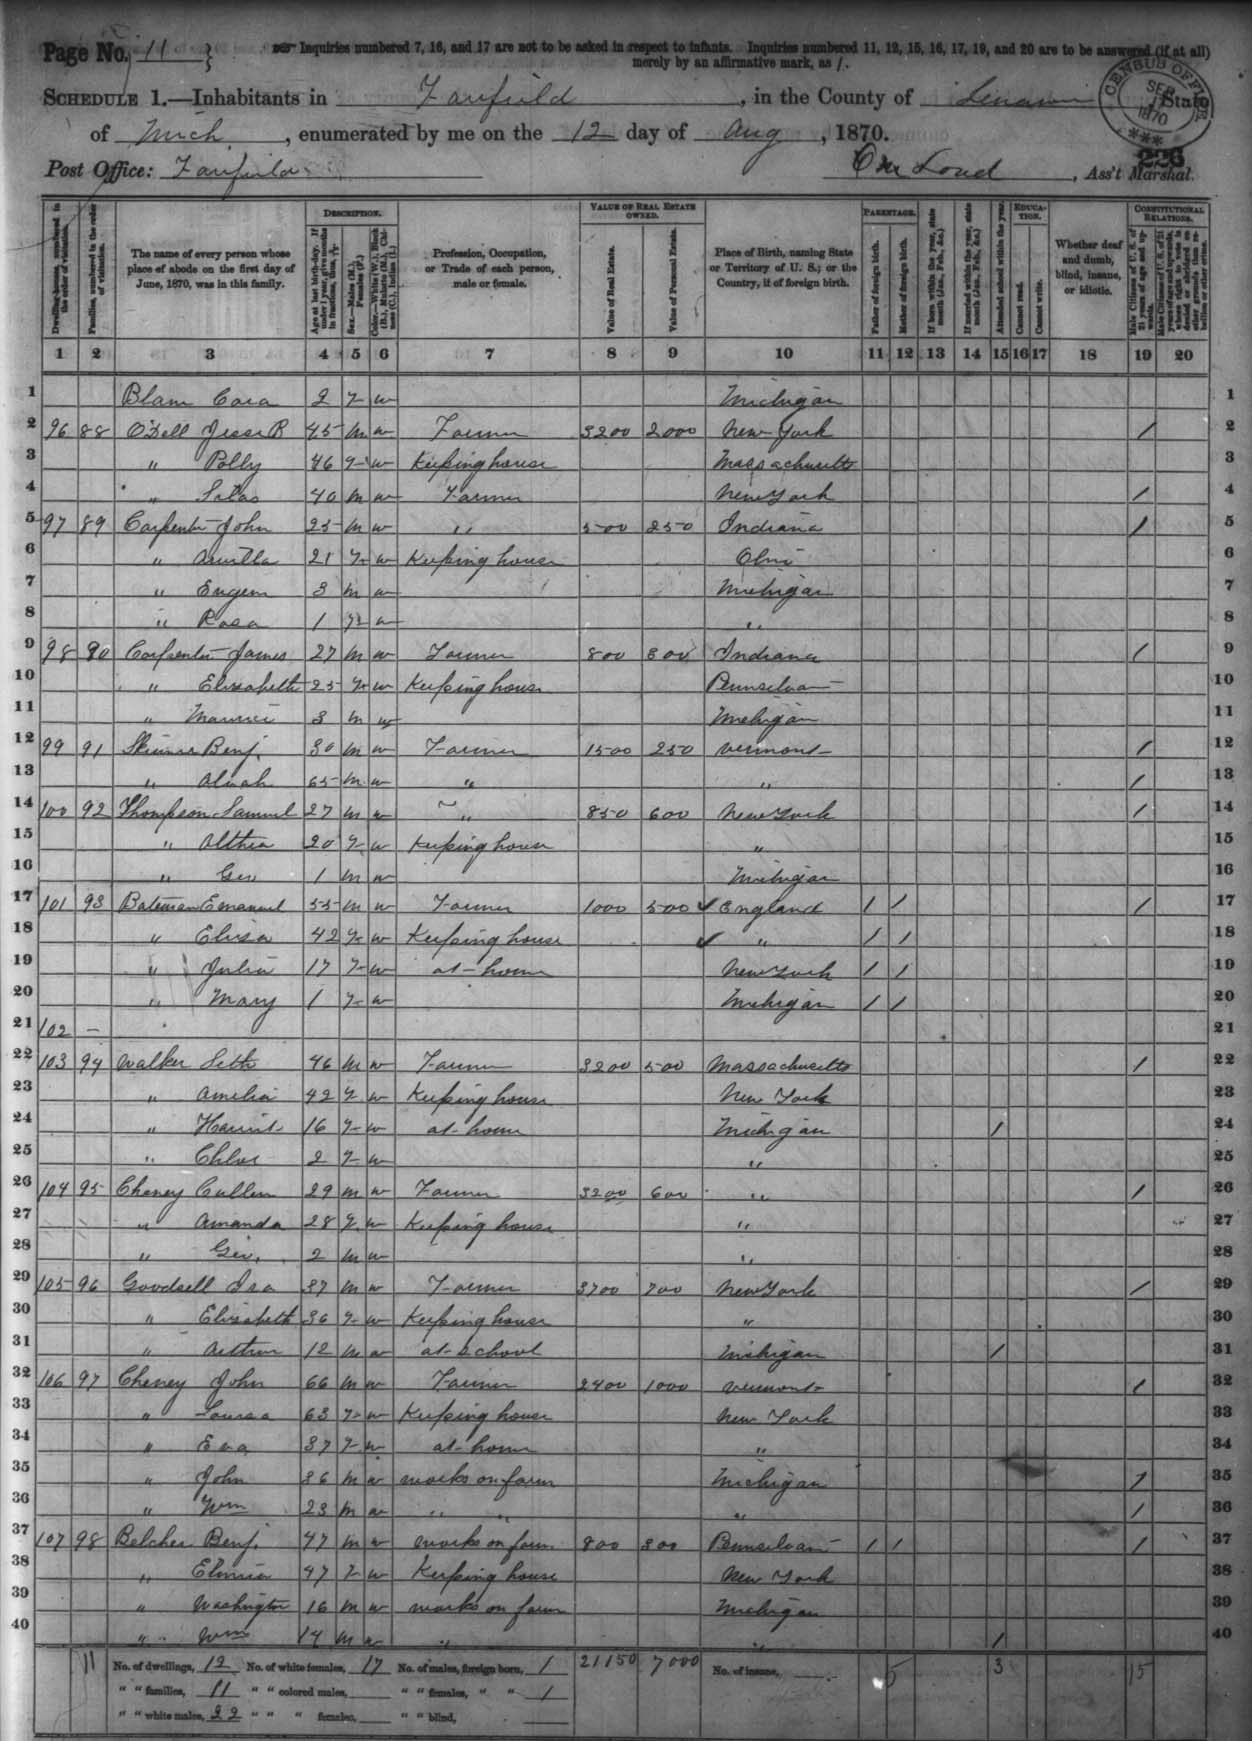 Page No. 11 } Inquiries numbered 7, 16, and 17 are not to be asked in respect to infants. Inquiries numbered 11, 12, 15, 16, 17, 19, and 20 are to be answered (if at all)
merely by an affirmative mark, as /.
CENSUS OFFICE SEP 17 1870 ***
SCHEDULE 1.—Inhabitants in Fairfield, in the County of Lenawee, State
of Mich, enumerated by me on the 12 day of Aug, 1870.
226
Post Office: Fairfield Loud, Ass't Marshal.
Dwelling-houses, numbered in the order of visitation.
Families, numbered in the order of visitation.
The name of every person whose place of abode on the first day of June, 1870, was in this family.
DESCRIPTION.
Age at last birth-day. If under 1 year, give months in fractions, thus, 3/12
Sex.—Males (M.), Females (F.)
Color.—White (W.), Black (B.), Mulatto (M.), Chinese (C.), Indian (I.)
Profession, Occupation, or Trade of each person, male or female.
VALUE OF REAL ESTATE OWNED.
Value of Real Estate.
Value of Personal Estate.
Place of Birth, naming State or Territory of U. S.; or the Country, if of foreign birth.
PARENTAGE.
Father of foreign birth.
Mother of foreign birth.
If born within the year, state month (Jan., Feb., &c.)
If married within the year, state month (Jan., Feb., &c.)
Attended school within the year.
EDUCATION.
Cannot read.
Cannot write.
Whether deaf and dumb, blind, insane, or idiotic.
CONSTITUTIONAL RELATIONS.
Male Citizens of U. S. of 21 years of age and upwards.
Male Citizens of U. S. of 21 years of age and upwards, whose right to vote is denied or abridged on other grounds than rebellion or other crime.
1 2 3 4 5 6 7 8 9 10 11 12 13 14 15 16 17 18 19 20
1 Blam Cora 2 F W Michigan 1
2 96 88 O'Dell Jesse B 45 M W Farmer 3200 2000 New York / 2
3 " Polly 46 F W Keeping house Massachusetts 3
4 " Silas 40 M W Farmer New York / 4
5 97 89 Carpenter John 25 M W " 500 250 Indiana / 5
6 " 21 F W Keeping house Ohio 6
7 " Eugene 3 M W Michigan 7
8 " Rosa 1 F W " 8
9 98 90 Carpenter James 27 M W Farmer 800 300 Indiana / 9
10 " Elisabeth 25 F W Keeping house Pennselvan 10
11 " Maurice 3 M W Michigan 11
12 99 91 Skinner Benj. 30 M W Farmer 1500 250 Vermont / 12
13 " Alvah 65 M W " " / 13
14 100 92 Thompson Samuel 27 M W " 850 600 New York / 14
15 " Althea 20 F W Keeping house " 15
16 " Geo 1 M W Michigan 16
17 101 93 Bateman Emanuel 55 M W Farmer 1000 500 ✓ England / / / 17
18 " Elisa 42 F W Keeping house ✓ " / / 18
19 " Julia 17 F W at home New York / / 19
20 " Mary 1 F W Michigan / / 20
21 102 — 21
22 103 94 Walker Seth 46 M W Farmer 3200 500 Massachusetts / 22
23 " Amelia 42 F W Keeping house New York 23
24 " Harriet 16 F W at home Michigan / 24
25 " Chloe 2 F W " 25
26 104 95 Cheney Cullen 29 M W Farmer 3200 600 " / 26
27 " Amanda 28 F W Keeping house " 27
28 " Geo. 2 M W " 28
29 105 96 Goodsell Ira 37 M W Farmer 3700 700 New York / 29
30 " Elisabeth 36 F W Keeping house " 30
31 " Arthur 12 M W at school Michigan / 31
32 106 97 Cheney John 66 M W Farmer 2400 1000 Vermont / 32
33 " Louisa 63 F W Keeping house New York 33
34 " Eva 37 F W at home " 34
35 " John 36 M W works on farm Michigan / 35
36 " Wm 23 M W " " " / 36
37 107 98 Belcher Benj. 47 M W works on farm 800 300 Pennselvan / / / 37
38 " Elmira 47 F W Keeping house New York 38
39 " Washington 16 M W works on farm Michigan 39
40 " Wm 14 M W " " / 40
11 No. of dwellings, 12 No. of white females, 17 No. of males, foreign born, 1 21150 7000 No. of insane, 5 3 15
" " families, 11 " " colored males, " " females, " " 1
" " white males, 22 " " " females, " " blind,